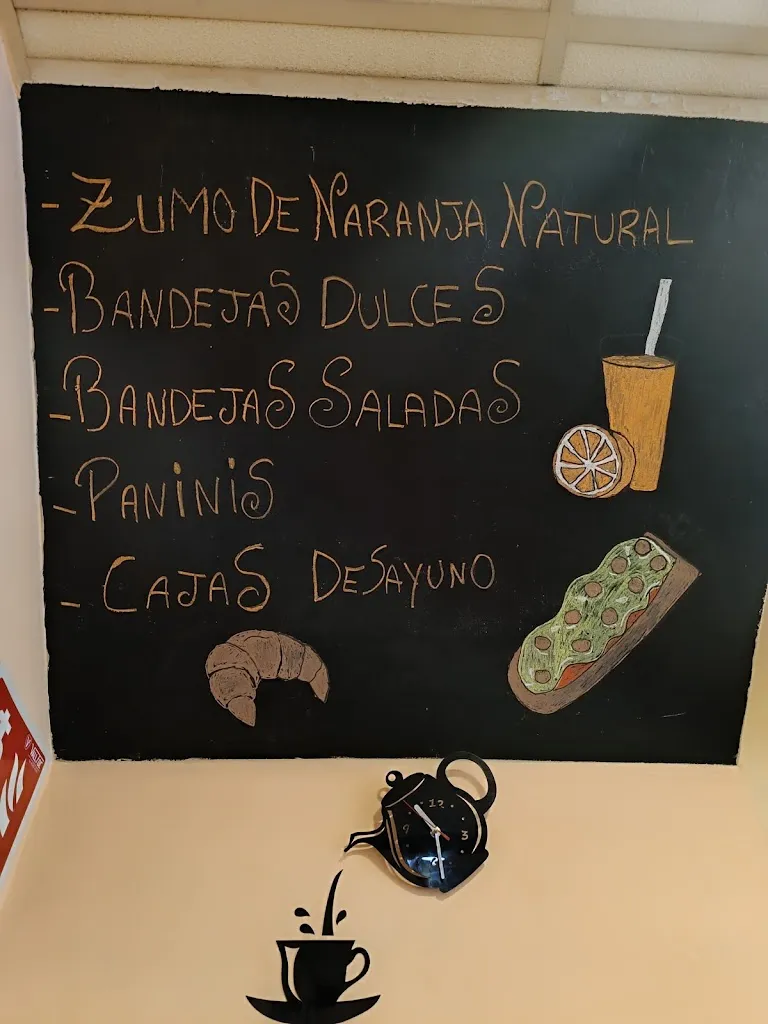 - ZUMO DE NARANJA NATURAL
- BANDEJAS DULCES
- BANDEJAS SALADAS
- PANiNiS
- CAJAS DESAYUNO
12
9 3